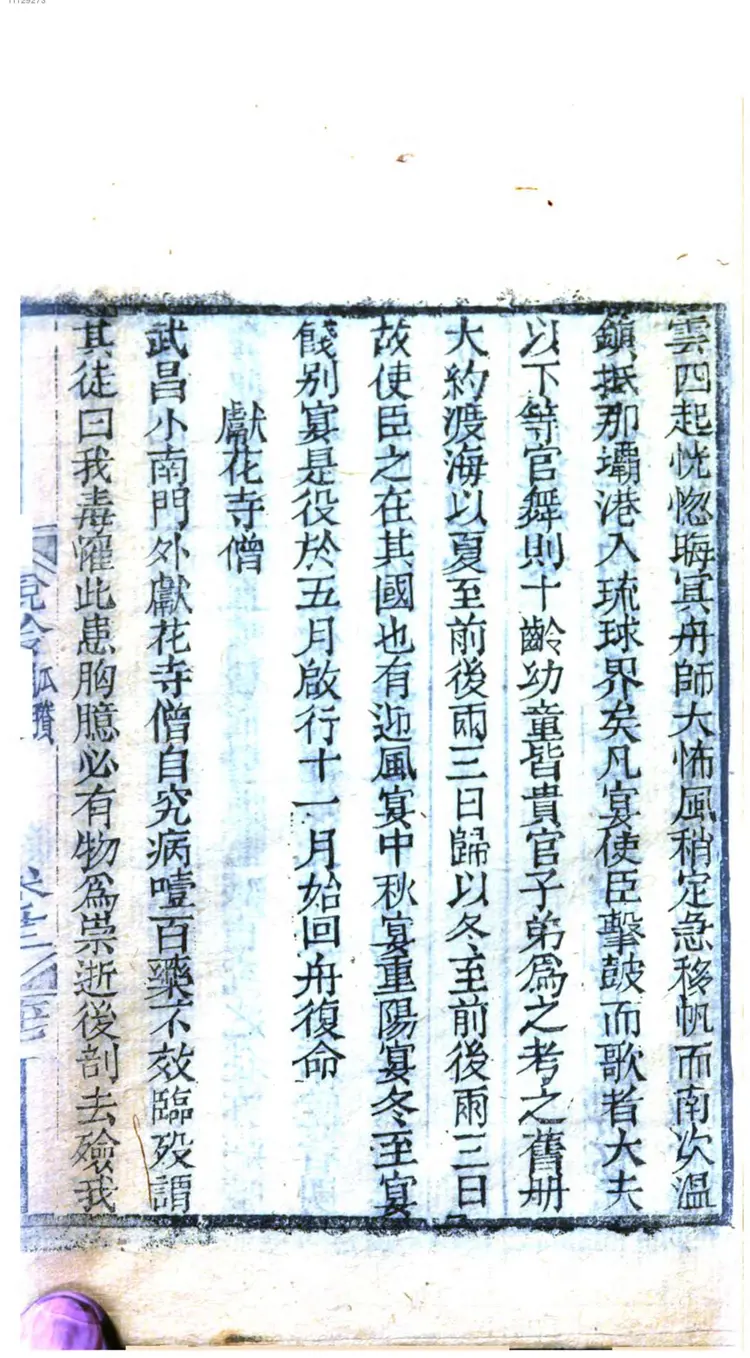 雲四起恍惚晦冥舟師大怖風稍定急移帆而南次溫
鎮抵那壩港入琉球界矣凡宴使臣擊鼓而歌者大夫
以下等官舞則十齡幼童皆貴官子弟爲之考之舊册
大約渡海以夏至前後兩三日歸以冬至前後兩三日
故使臣之在其國也有迎風宴中秋宴重陽宴冬至宴
餞别宴是役於五月啟行十一月始回舟復命
獻花寺僧
武昌小南門外獻花寺僧自究病噎百藥不效臨殁謂
其徒曰我毒罹此患胸臆必有物爲祟逝後剖去殮我
說鈴
11729273